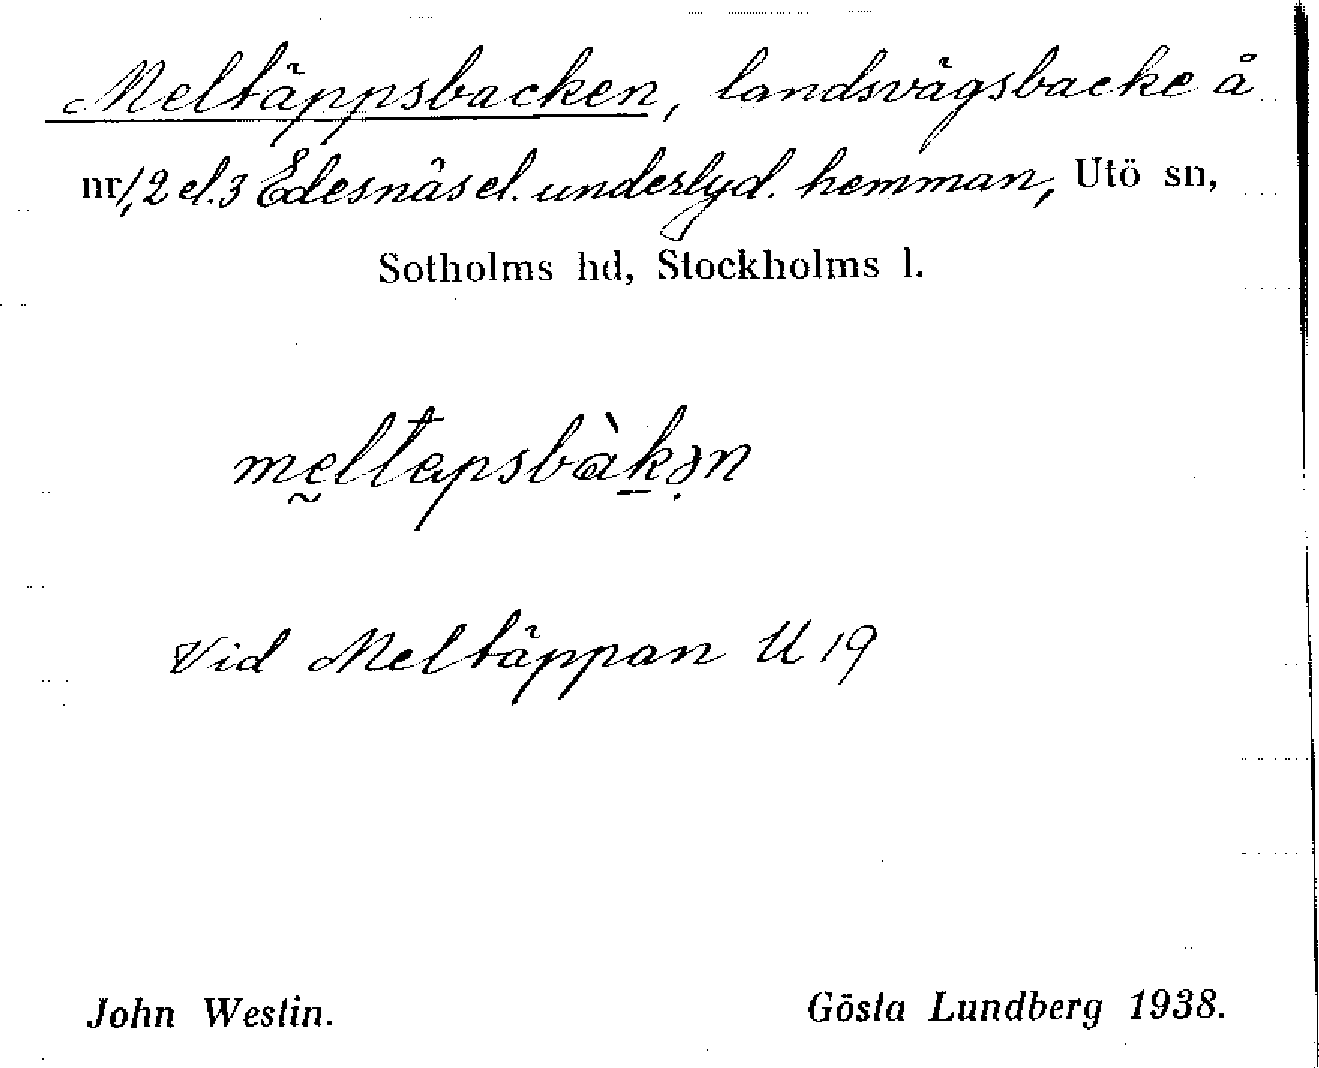 Meltäppsbacken, landsvägsbacke å
nr 1, 2 el. 3 Edesnäs el. underlyd. hemman, Utö sn,
Sotholms hd, Stockholms l.
vid Meltäppan U 19
John Westin.
Gösta Lundberg 1938.